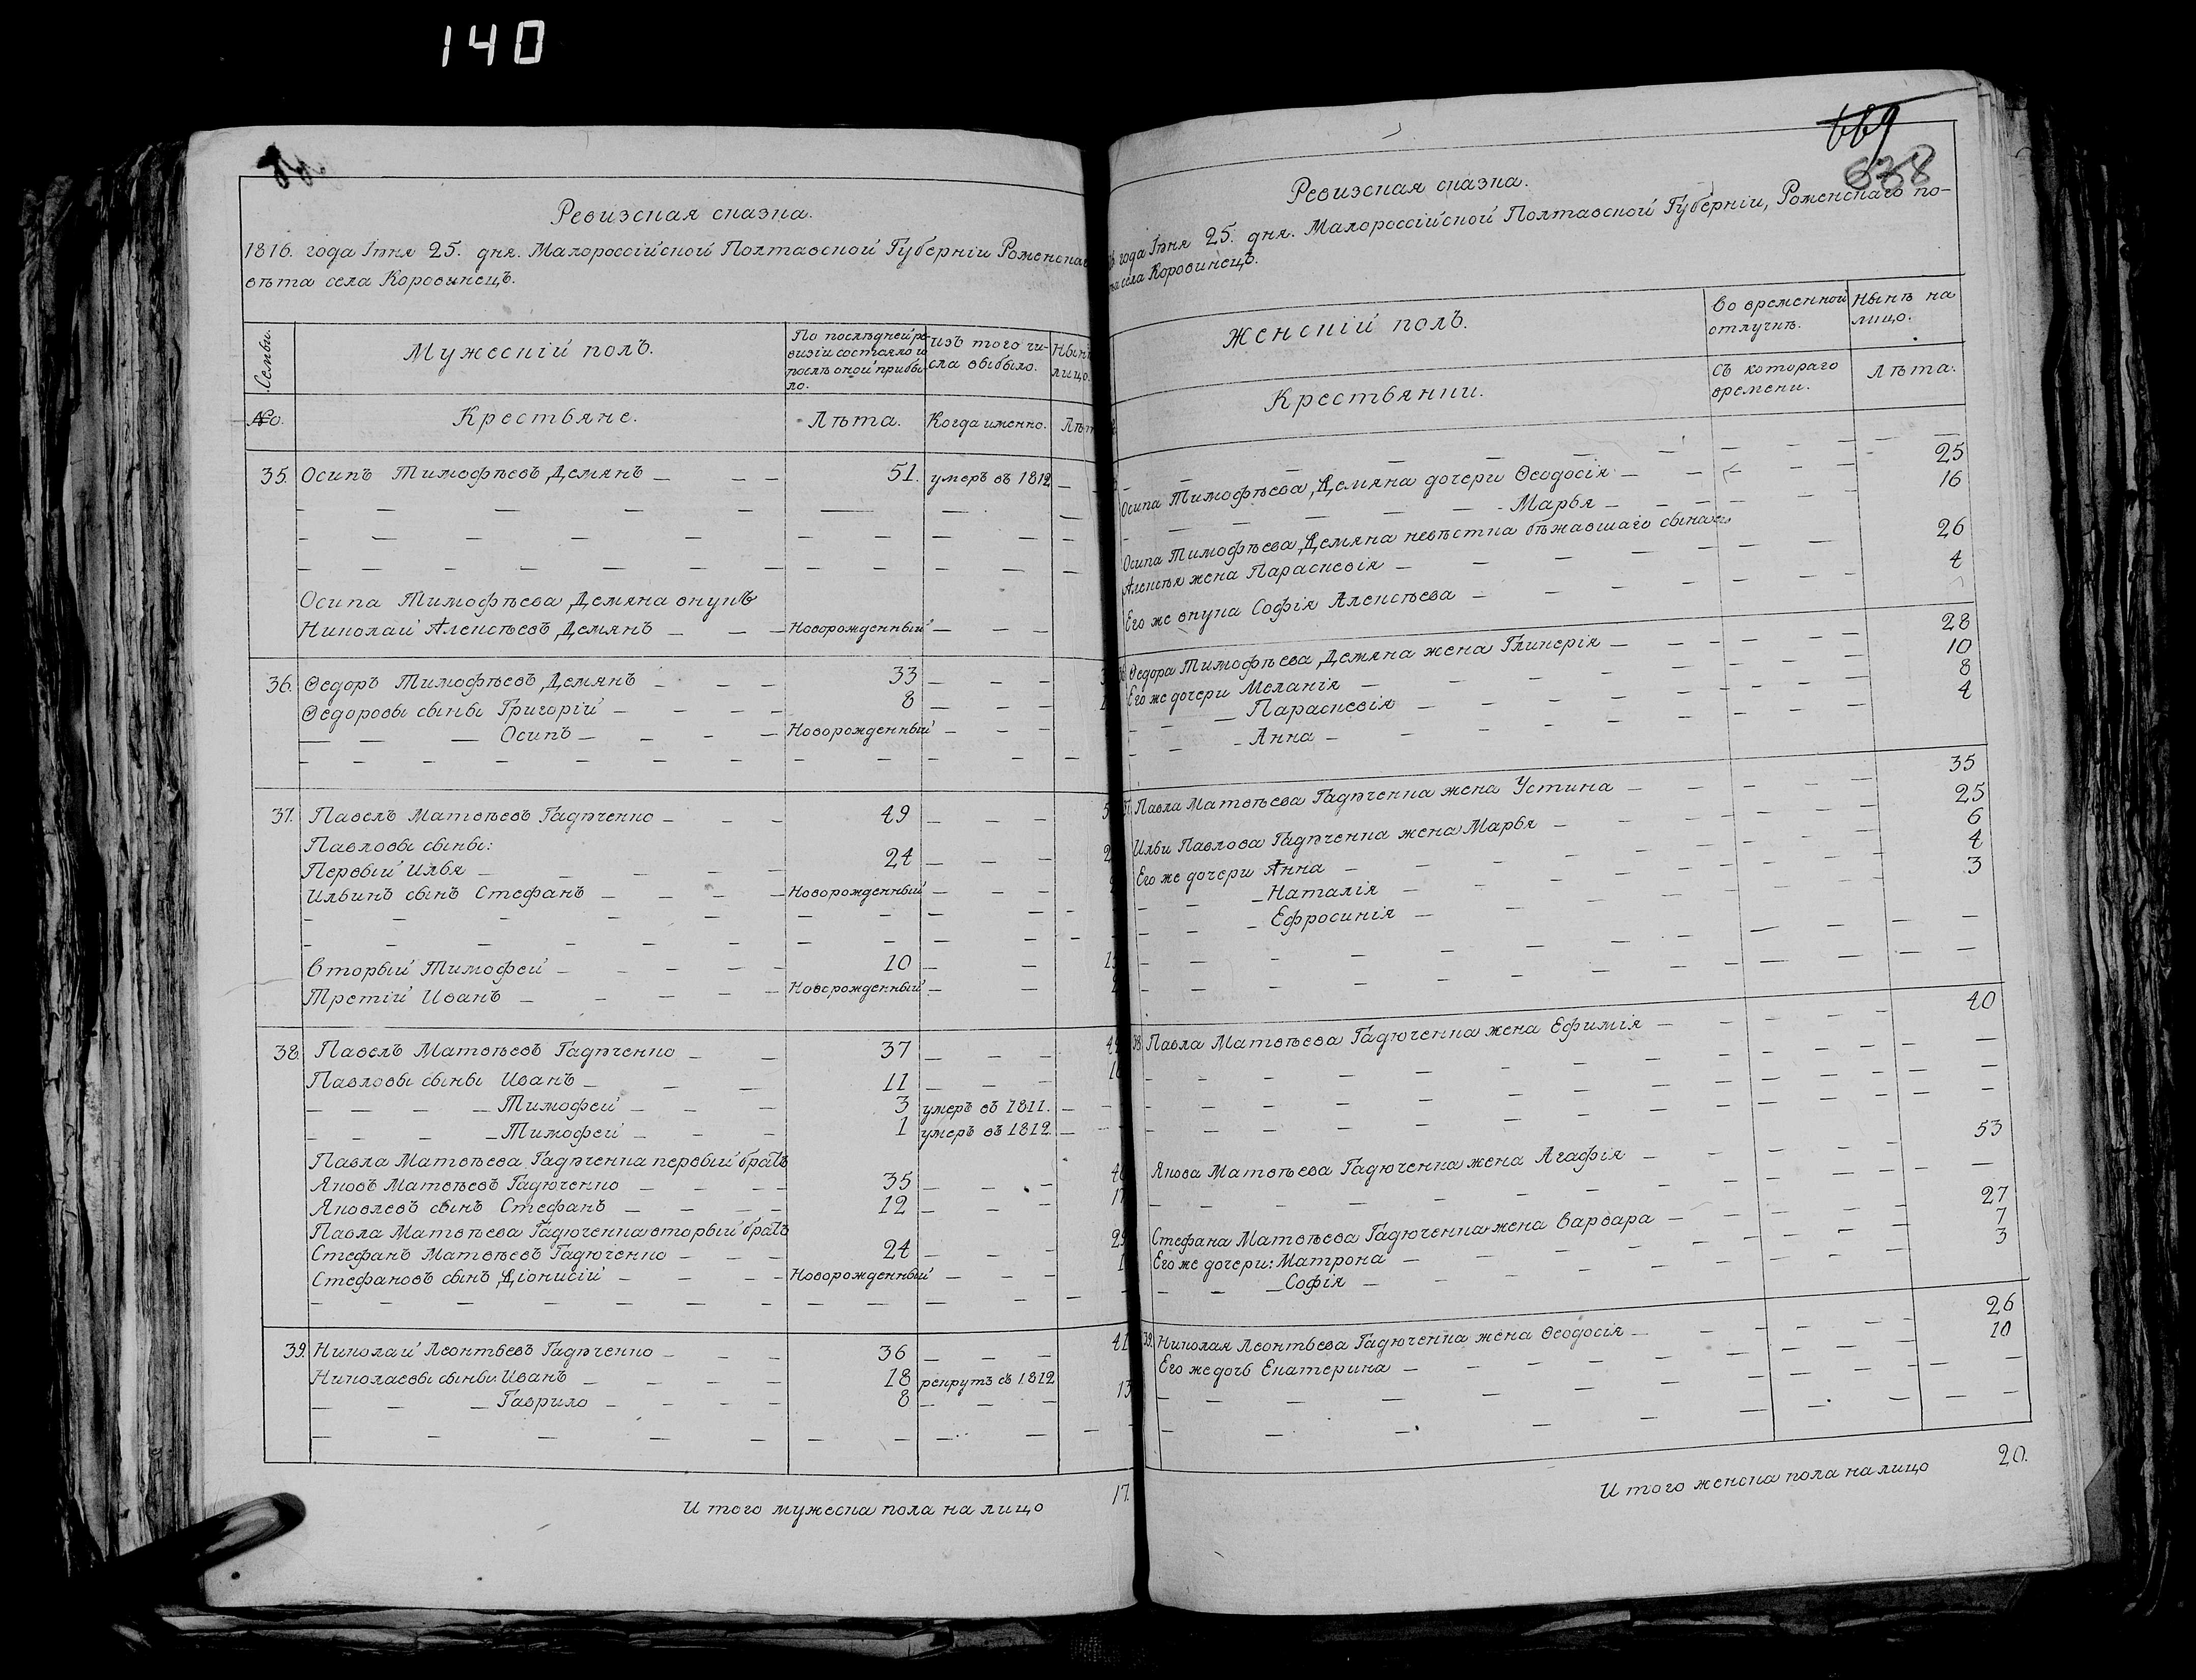 140
Ревизская сказка.
1816. года Іюня 25. дня. Малороссійской Полтавской Губерніи Роменскаго
вѣта села Коровинецъ.
Семьи.
Мужескій полъ.
По послѣдней ре-
визіи состояло и
послѣ оной прибы
ло.
изъ того чи-
сла выбыло.
Нынѣ
лицо.
№о.
Крестьяне.
Лѣта.
Когда именно.
Лѣт
35. Осипъ Тимофѣевъ Демянъ — — — 51. умеръ въ 1812 —
Осипа Тимофѣева Демяна внукъ
Николай Алексѣевъ Демянъ — — — Новорожденный — — —
36. Ѳедоръ Тимофѣевъ Демянъ — — — 33 — — —
Ѳедоровы сыны Григорій — — — — 8 — — —
— — — Осипъ — — — — Новорожденный — — —
37. Павелъ Матвѣевъ Гадюченко — — — 49 — — —
Павловы сыны:
Первый Илья — — — — — 24 — — —
Ильинъ сынъ Стефанъ — — — — Новорожденный — — —
Вторый Тимофей — — — — — 10 — —
Третій Иванъ — — — — — Новорожденный — —
38. Павелъ Матвѣевъ Гадюченко — — 37 — — —
Павловы сыны Иванъ — — — 11 — — —
— — — — Тимофей — — — 3 умеръ въ 1811. —
— — — — Тимофей — — — 1 умеръ въ 1812. —
Павла Матвѣева Гадюченка первый братъ
Яковъ Матвѣевъ Гадюченко — — — — 35 — — —
Яковлевъ сынъ Стефанъ — — — — 12 — — —
Павла Матвѣева Гадюченка вторый братъ
Стефанъ Матвѣевъ Гадюченко — — — 24 — — — 29
Стефановъ сынъ Діонисій — — — — Новорожденный — — —
39. Николай Леонтьевъ Гадюченко — — — 36 — — — 41
Николаевы сыны Иванъ — — — — 18 рекрутъ въ 1812
— — — Гаврило — — — — 8 — — — 13
И того мужеска пола на лицо 17.
669
638
Ревизская сказка.
года Іюня 25. дня. Малороссійской Полтавской Губерніи, Роменскаго по-
села Коровинецъ.
Женскій полъ.
Во временной
отлучкѣ.
Нынѣ на
лицо.
Крестьянки.
Съ котораго
времени.
Лѣта.
Осипа Тимофѣева Демяна дочери Ѳеодосія — — — 25
— — — — — Марья — — — 16
Осипа Тимофѣева Демяна невѣстка бѣжавшаго сына
Алексѣя жена Параскевія — — — 26
Его же внука Софія Алексѣева — — — 4
Ѳедора Тимофѣева Демяна жена Гликерія — — — 28
Его же дочери Меланія — — — 10
— — Параскевія — — — 8
— — — Анна — — — 4
Павла Матвѣева Гадюченка жена Устина — — — 35
Ильи Павлова Гадюченка жена Марья — — — 25
Его же дочери Анна — — — 6
— — — Наталія — — — 4
— — — Ефросинія — — — 3
38. Павла Матвѣева Гадюченка жена Ефимія — — — 40
Якова Матвѣева Гадюченка жена Агафія — — — 53
Стефана Матвѣева Гадюченка жена Варвара — — — 27
Его же дочери: Матрона — — — 7
— — — Софія — — — 3
39. Николая Леонтьева Гадюченка жена Ѳеодосія — — — 26
Его же дочь Екатерина — — — 10
И того женска пола на лицо 20.